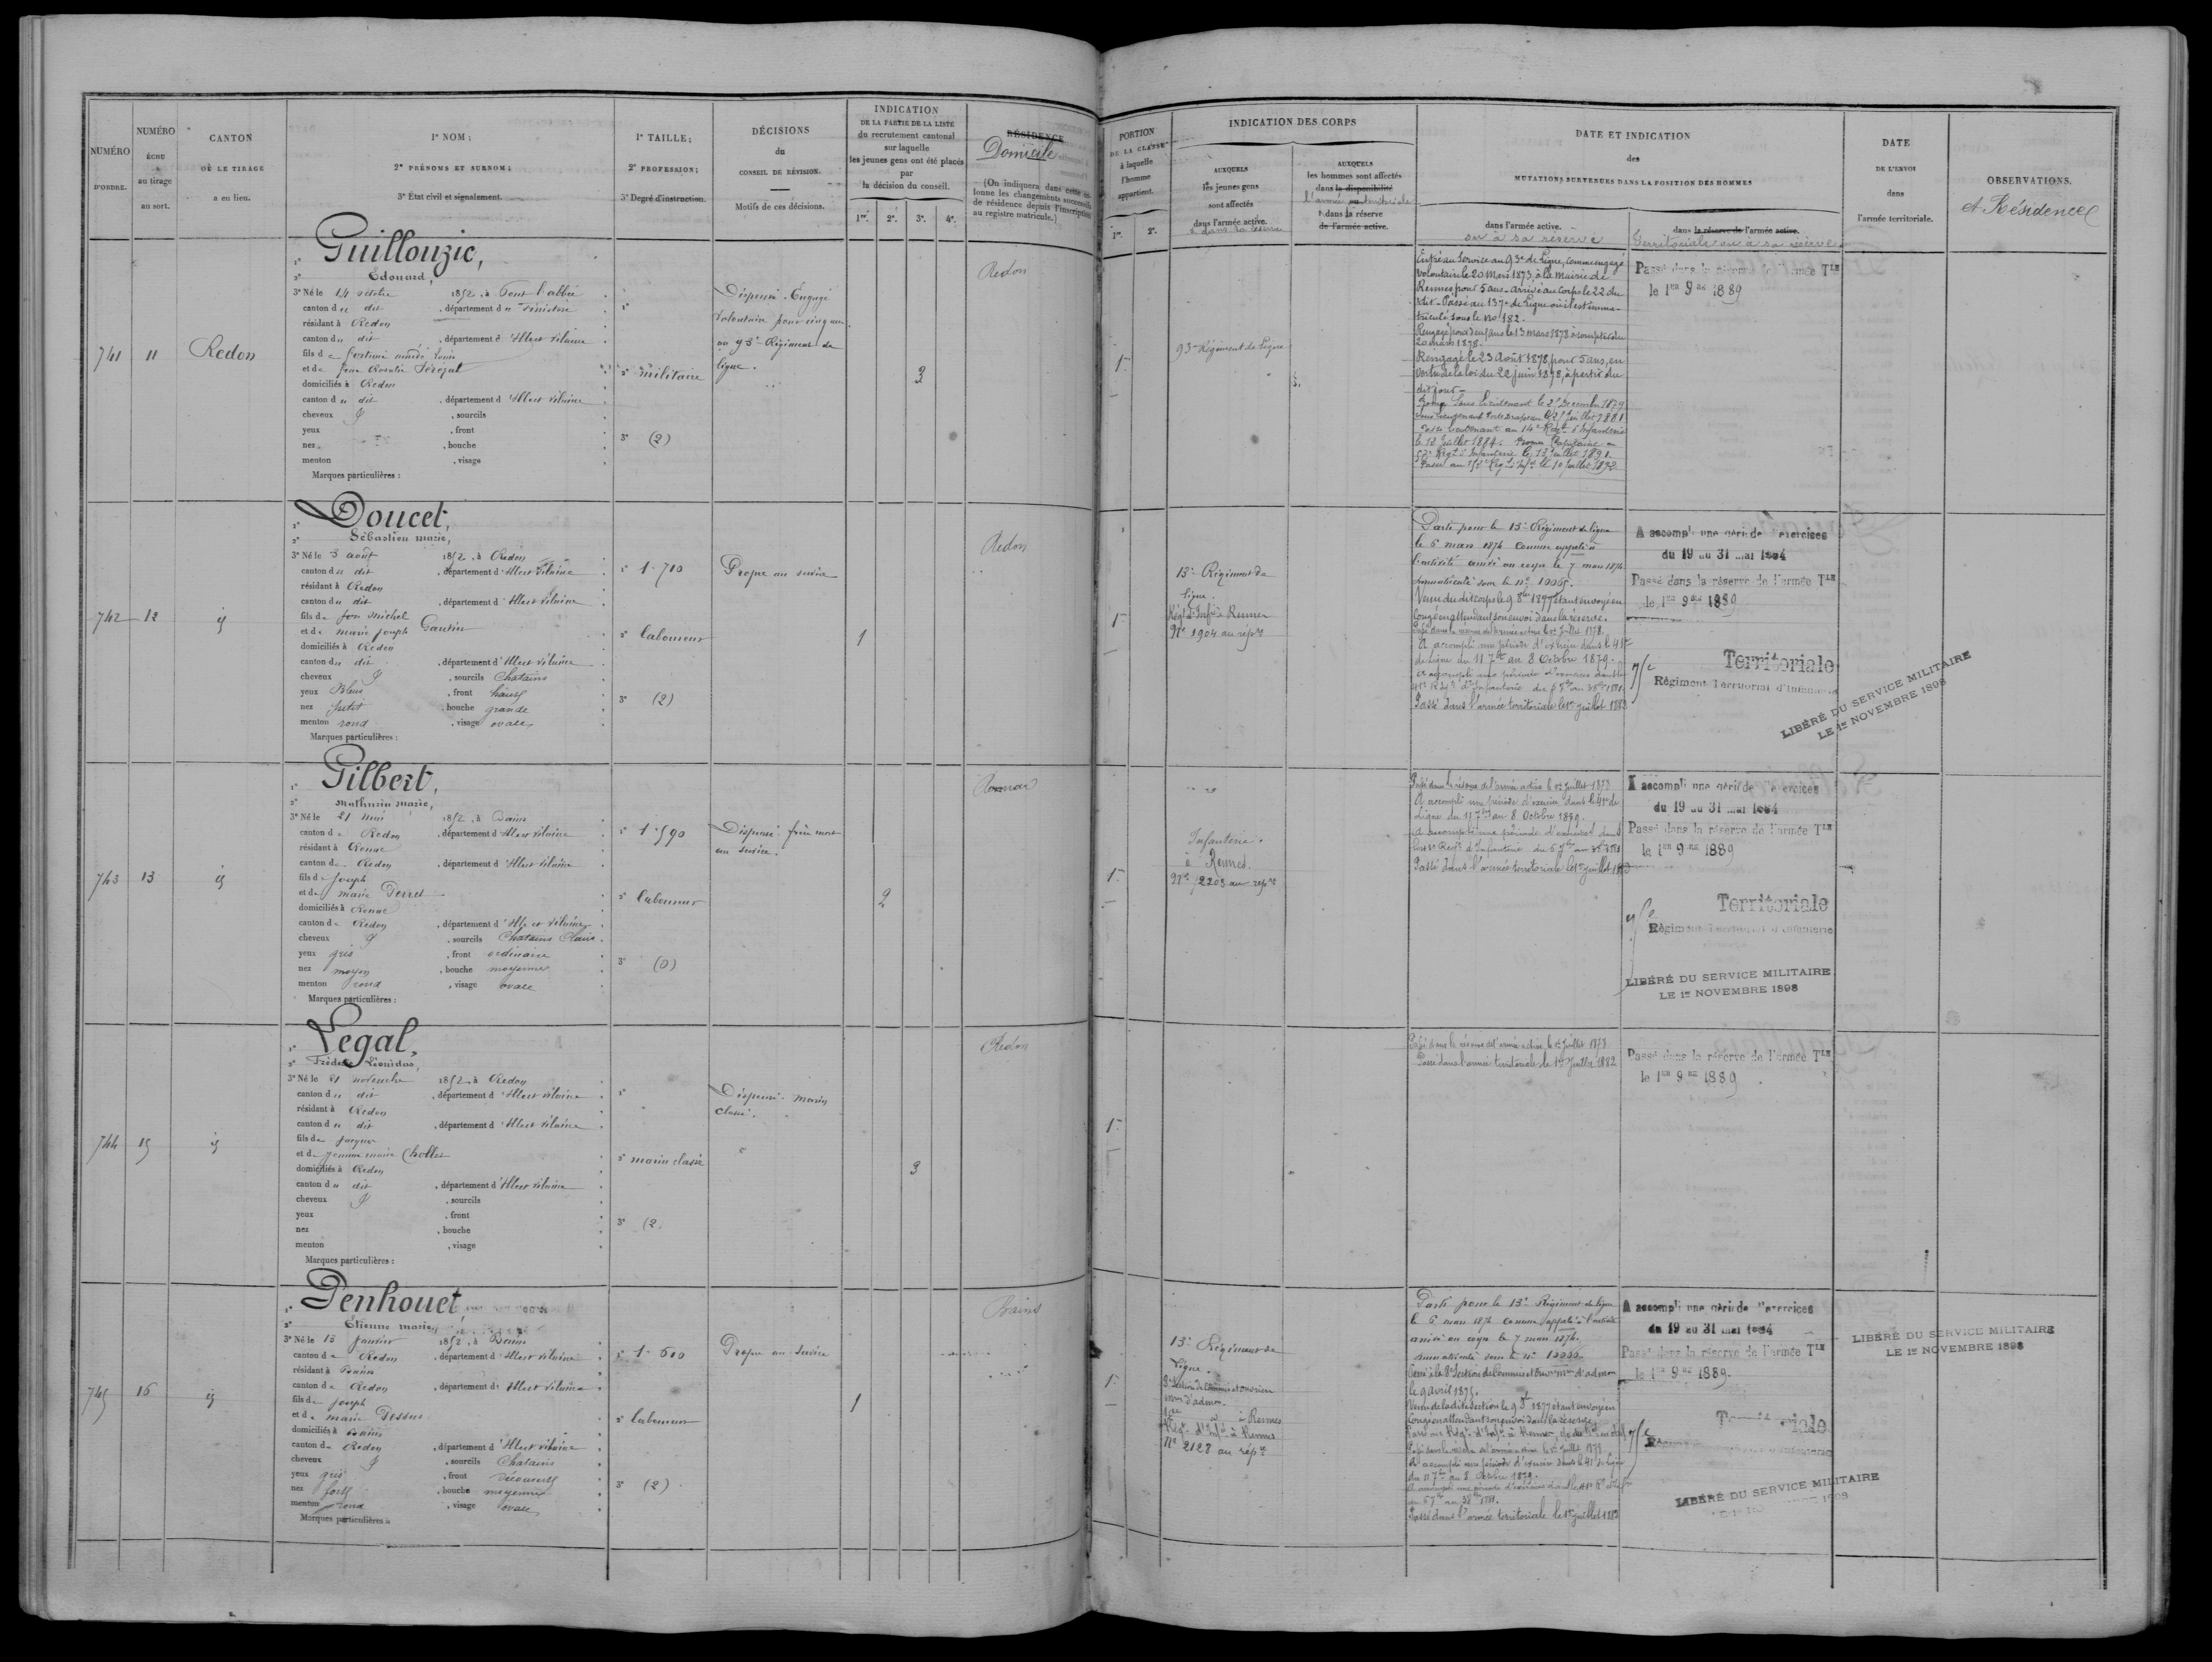 NUMÉRO
D'ORDRE.
NUMÉRO
ÉCHU
au tirage
au sort.
CANTON
OÙ LE TIRAGE
a eu lieu.
1° NOM ;
2° PRÉNOMS ET SURNOM ;
3° État civil et signalement.
1° TAILLE ;
2° PROFESSION ;
3° Degré d'instruction.
DÉCISIONS
du
CONSEIL DE RÉVISION.
Motifs de ces décisions.
INDICATION
DE LA PARTIE DE LA LISTE
du recrutement cantonal
sur laquelle
les jeunes gens ont été placés
par
la décision du conseil.
1re. 2e. 3e. 4e.
RÉSIDENCE
Domicile
(On indiquera dans cette co-
lonne les changements successifs
de résidence depuis l'inscription
au registre matricule.)
PORTION
DE LA CLASSE
à laquelle
l'homme
appartient.
1re. 2e.
INDICATION DES CORPS
AUXQUELS
les jeunes gens
sont affectés
dans l'armée active.
& dans sa réserve
AUXQUELS
les hommes sont affectés
dans la disponibilité
l'armée territoriale
& dans la réserve
de l'armée active.
DATE ET INDICATION
des
MUTATIONS SURVENUES DANS LA POSITION DES HOMMES
dans l'armée active.
ou à sa réserve
dans la réserve de l'armée active.
Territoriale ou à sa réserve
DATE
DE L'ENVOI
dans
l'armée territoriale.
OBSERVATIONS.
et Résidence
741
11
Redon
1° Guillouzic,
2° Édouard,
3° Né le 14 octobre 1852, à Pont l'abbé
canton du dit, département du Finistère
résidant à Redon
canton du dit, département d'Ille et Vilaine
fils de
et de
domiciliés à Redon
canton du dit, département d'Ille et Vilaine
cheveux, sourcils
yeux, front
nez, bouche
menton, visage
Marques particulières :
1°
2° militaire
3° (2)
Dispensé. Engagé
volontaire pour cinq ans
au 93e Régiment de
ligne.
3
Redon
1re
93e Régiment de Ligne
Entré au Service au 93e de Ligne, comme engagé
volontaire le 20 Mars 1873, à la Mairie de
Rennes pour 5 ans - arrivé au Corps le 22 du
dit - Passé au 137e de Ligne où il est imma-
triculé sous le No 182.
Rengagé pour deux ans le 13 mars 1878 à compter du
20 mars 1878.
Rengagé le 23 Août 1878 pour 5 ans, en
vertu de la loi du 22 juin 1878, à partir du
dit jour -
Promu Sous Lieutenant le 2 Décembre 1879
Juillet 1881
Lieutenant au 14e Régt d'Infanterie
le 12 Juillet 1884. Promu Capitaine au
Régt d'Infanterie le 13 Juillet 1891.
Passé au Régt d'Infie le 10 Juillet 1892
Passé dans la réserve de l'Armée Tle
le 1er 9bre 1889
742
12
id
1° Doucet,
2° Sébastien marie,
3° Né le 3 août 1852, à Redon
canton du dit, département d'Ille et Vilaine
résidant à Redon
canton du dit, département d'Ille et Vilaine
fils de feu Michel
et de marie joseph Gautier
domiciliés à Redon
canton du dit, département d'Ille et Vilaine
cheveux, sourcils Chatains
yeux Bleus, front haut
nez petit, bouche grande
menton rond, visage ovale
Marques particulières :
1° 1.710
2° laboureur
3° (2)
Propre au service
1
Redon
1re
13e Régiment de
ligne.
Régt d'Infie à Rennes
No 1904 au répre
Parti pour le 13e Régiment de ligne
le 6 mars 1874 comme appelé à
l'activité arrivé au corps le 7 mars 1874
immatriculé sous le no 10065.
Venu du dit corps le 9 8bre 1877 étant envoyé en
Congé en attendant son envoi dans la réserve.
Passé dans la réserve de l'armée active le 1er Juillet 1878.
A accompli une période d'exercice dans le 41e
de Ligne du 11 7bre au 8 Octobre 1879.
A accompli une période d'exercices dans le
41e Régt d'Infanterie du 6 7bre au 3 8bre 1881.
Passé dans l'armée territoriale le 1er Juillet 1882
A accompli une période d'exercices
du 19 au 31 mai 1884
Passé dans la réserve de l'armée Tle
le 1er 9bre 1889
75e Territoriale
Régiment Territorial d'Infanterie
LIBÉRÉ DU SERVICE MILITAIRE
LE 1er NOVEMBRE 1898
743
13
id
1° Gilbert,
2° Mathurin Marie,
3° Né le 21 mai 1852, à Bains
canton de Redon, département d'Ille et Vilaine
résidant à Renac
canton de Redon, département d'Ille et Vilaine
fils de Joseph
et de marie Derret
domiciliés à Renac
canton de Redon, département d'Ille et Vilaine
cheveux, sourcils Chatains Clairs
yeux gris, front ordinaire
nez moyen, bouche moyenne
menton rond, visage ovale
Marques particulières :
1° 1.590
2° laboureur
3° (0)
Dispensé. frère mort
au service.
2
Renac
1re
Infanterie.
à Rennes.
No 2203 au répre
Passé dans la réserve de l'armée active le 1er Juillet 1878
A accompli une période d'exercice dans le 41e de
Ligne du 11 7bre au 8 Octobre 1879.
A accompli une période d'exercices dans
le 41e Régt d'Infanterie du 6 7bre au 3 8bre 1881
Passé dans l'armée territoriale le 1er Juillet 1882
A accompli une période d'exercices
du 19 au 31 mai 1884
Passé dans la réserve de l'armée Tle
le 1er 9bre 1889
75e Territoriale
Régiment Territorial d'Infanterie
LIBÉRÉ DU SERVICE MILITAIRE
LE 1er NOVEMBRE 1898
744
15
id
1° Legal,
2° Frédéric Léonidas,
3° Né le 21 novembre 1852, à Redon
canton du dit, département d'Ille et Vilaine
résidant à Redon
canton du dit, département d'Ille et Vilaine
fils de Jacques
et de Jeanne marie Chollet
domiciliés à Redon
canton du dit, département d'Ille et Vilaine
cheveux, sourcils
yeux, front
nez, bouche
menton, visage
Marques particulières :
1°
2° marin classé
3° (2)
Dispensé. marin
classé.
3
Redon
1re
Passé dans la réserve de l'armée active le 1er Juillet 1878
Passé dans l'armée territoriale le 1er Juillet 1882
Passé dans la réserve de l'armée Tle
le 1er 9bre 1889
745
16
id
1° Penhouet
2° Étienne marie,
3° Né le 13 janvier 1852, à Bains
canton de Redon, département d'Ille et Vilaine
résidant à Bains
canton de Redon, département d'Ille et Vilaine
fils de Joseph
et de marie Dessus
domiciliés à Bains
canton de Redon, département d'Ille et Vilaine
cheveux, sourcils Chatains
yeux gris, front découvert
nez fort, bouche moyenne
menton rond, visage ovale
Marques particulières :
1° 1.600
2° laboureur
3° (2)
Propre au Service
1
Bains
1re
13e Régiment de
Ligne.
Section de Commis et ouvriers
d'admon.
à Rennes
Régt d'Infie à Rennes
No 2128 au répre
Parti pour le 13e Régiment de ligne
le 6 mars 1874 comme appelé à l'activité
arrivé au corps le 7 mars 1874.
immatriculé sous le no
Passé à la Section de Commis et Ouvriers d'admon
le 9 avril 1875.
Venu de la dite section le 9 8bre 1877 étant envoyé en
Congé en attendant son envoi dans la réserve
Passé dans la réserve de l'armée active le 1er Juillet 1878
A accompli une période d'exercice dans le 41e de ligne
du 11 7bre au 8 Octobre 1879.
A accompli une période d'exercices dans le 41e
du 6 7bre au 3 8bre 1881.
Passé dans l'armée territoriale le 1er Juillet 1882
A accompli une période d'exercices
du 19 au 31 mai 1884
Passé dans la réserve de l'armée Tle
le 1er 9bre 1889.
75e Territoriale
LIBÉRÉ DU SERVICE MILITAIRE
LIBÉRÉ DU SERVICE MILITAIRE
LE 1er NOVEMBRE 1898